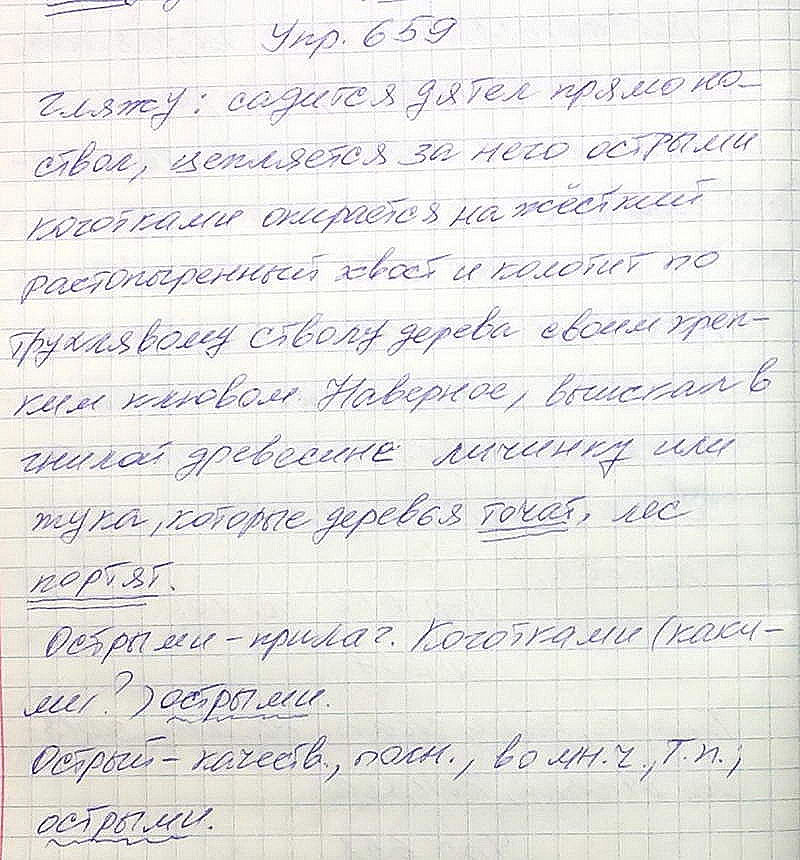 Упр. 659
Гляжу: садится дятел прямо на
ствол, цепляется за него острыми
коготками опирается на жёсткий
растопыренный хвост и колотит по
трухлявому стволу дерева своим креп-
ким клювом. Наверное, выискал в
гнилой древесине личинку или
жука, которые деревья точат, лес
портят.
Острыми - прилаг. Коготками (каки-
ми?) острыми.
Острый - качеств., полн., во мн.ч., Т.п.;
острыми.